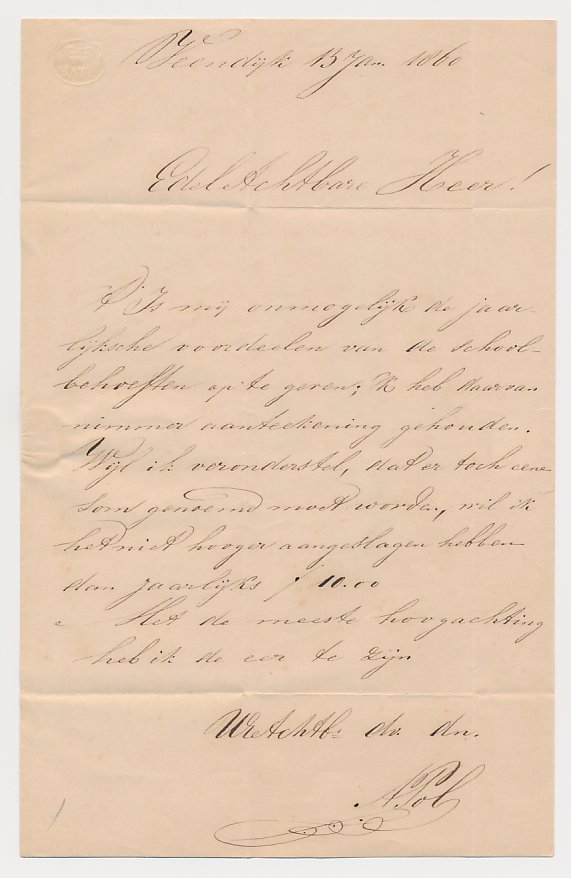 Veendijk 13 Jan. 1860
Edel Achtbare Heer!
't Is mij onmogelijk de jaar-
lijksche voordeelen van de school-
behoeften op te geven; 'k heb daarvan
nimmer aanteekening gehouden.
Wijl ik veronderstel, dat er toch eene
som genoemd moet worden, wil ik
het niet hooger aangeslagen hebben
dan jaarlijks f 10.00
Met de meeste hoogachting
heb ik de eer te zijn
UEAchtb. dv. dn.
A Pol